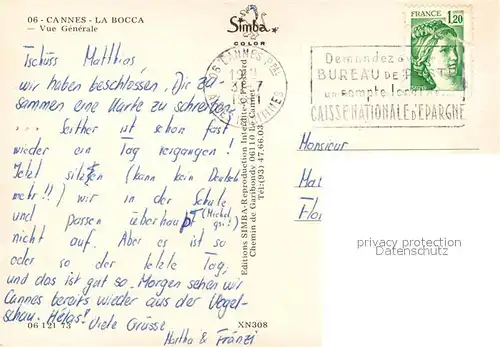 06 - CANNES - LA BOCCA
— Vue Générale
Simba
COLOR
Tschüss Matthias
wir haben beschlossen, Dir zu-
sammen eine Karte zu schreiben
... Seither ist schon fast
wieder ein Tag vergangen!
Jetzt sitzen (kann kein Deutsch
mehr!!) wir in der Schule
und passen überhaupt (Michel
nicht auf. Aber es ist so
oder so der letzte Tag,
und das ist gut so. Morgen sehen wir
Cannes bereits wieder aus der Vogel-
schau. Hélas! Viele Grüsse
Martha & Fränzi
06 121 73
XN308
Editions SIMBA-Reproduction Interdite-®-Proofcard
Chemin de Garibondy 06110 Le Cannet
Tél:(93) 47.66.03
FRANCE
1,20
06 CANNES PPAL
Demandez
BUREAU DE
un compte
CAISSE NATIONALE D'EPARGNE
Monsieur
privacy protection
Datenschutz